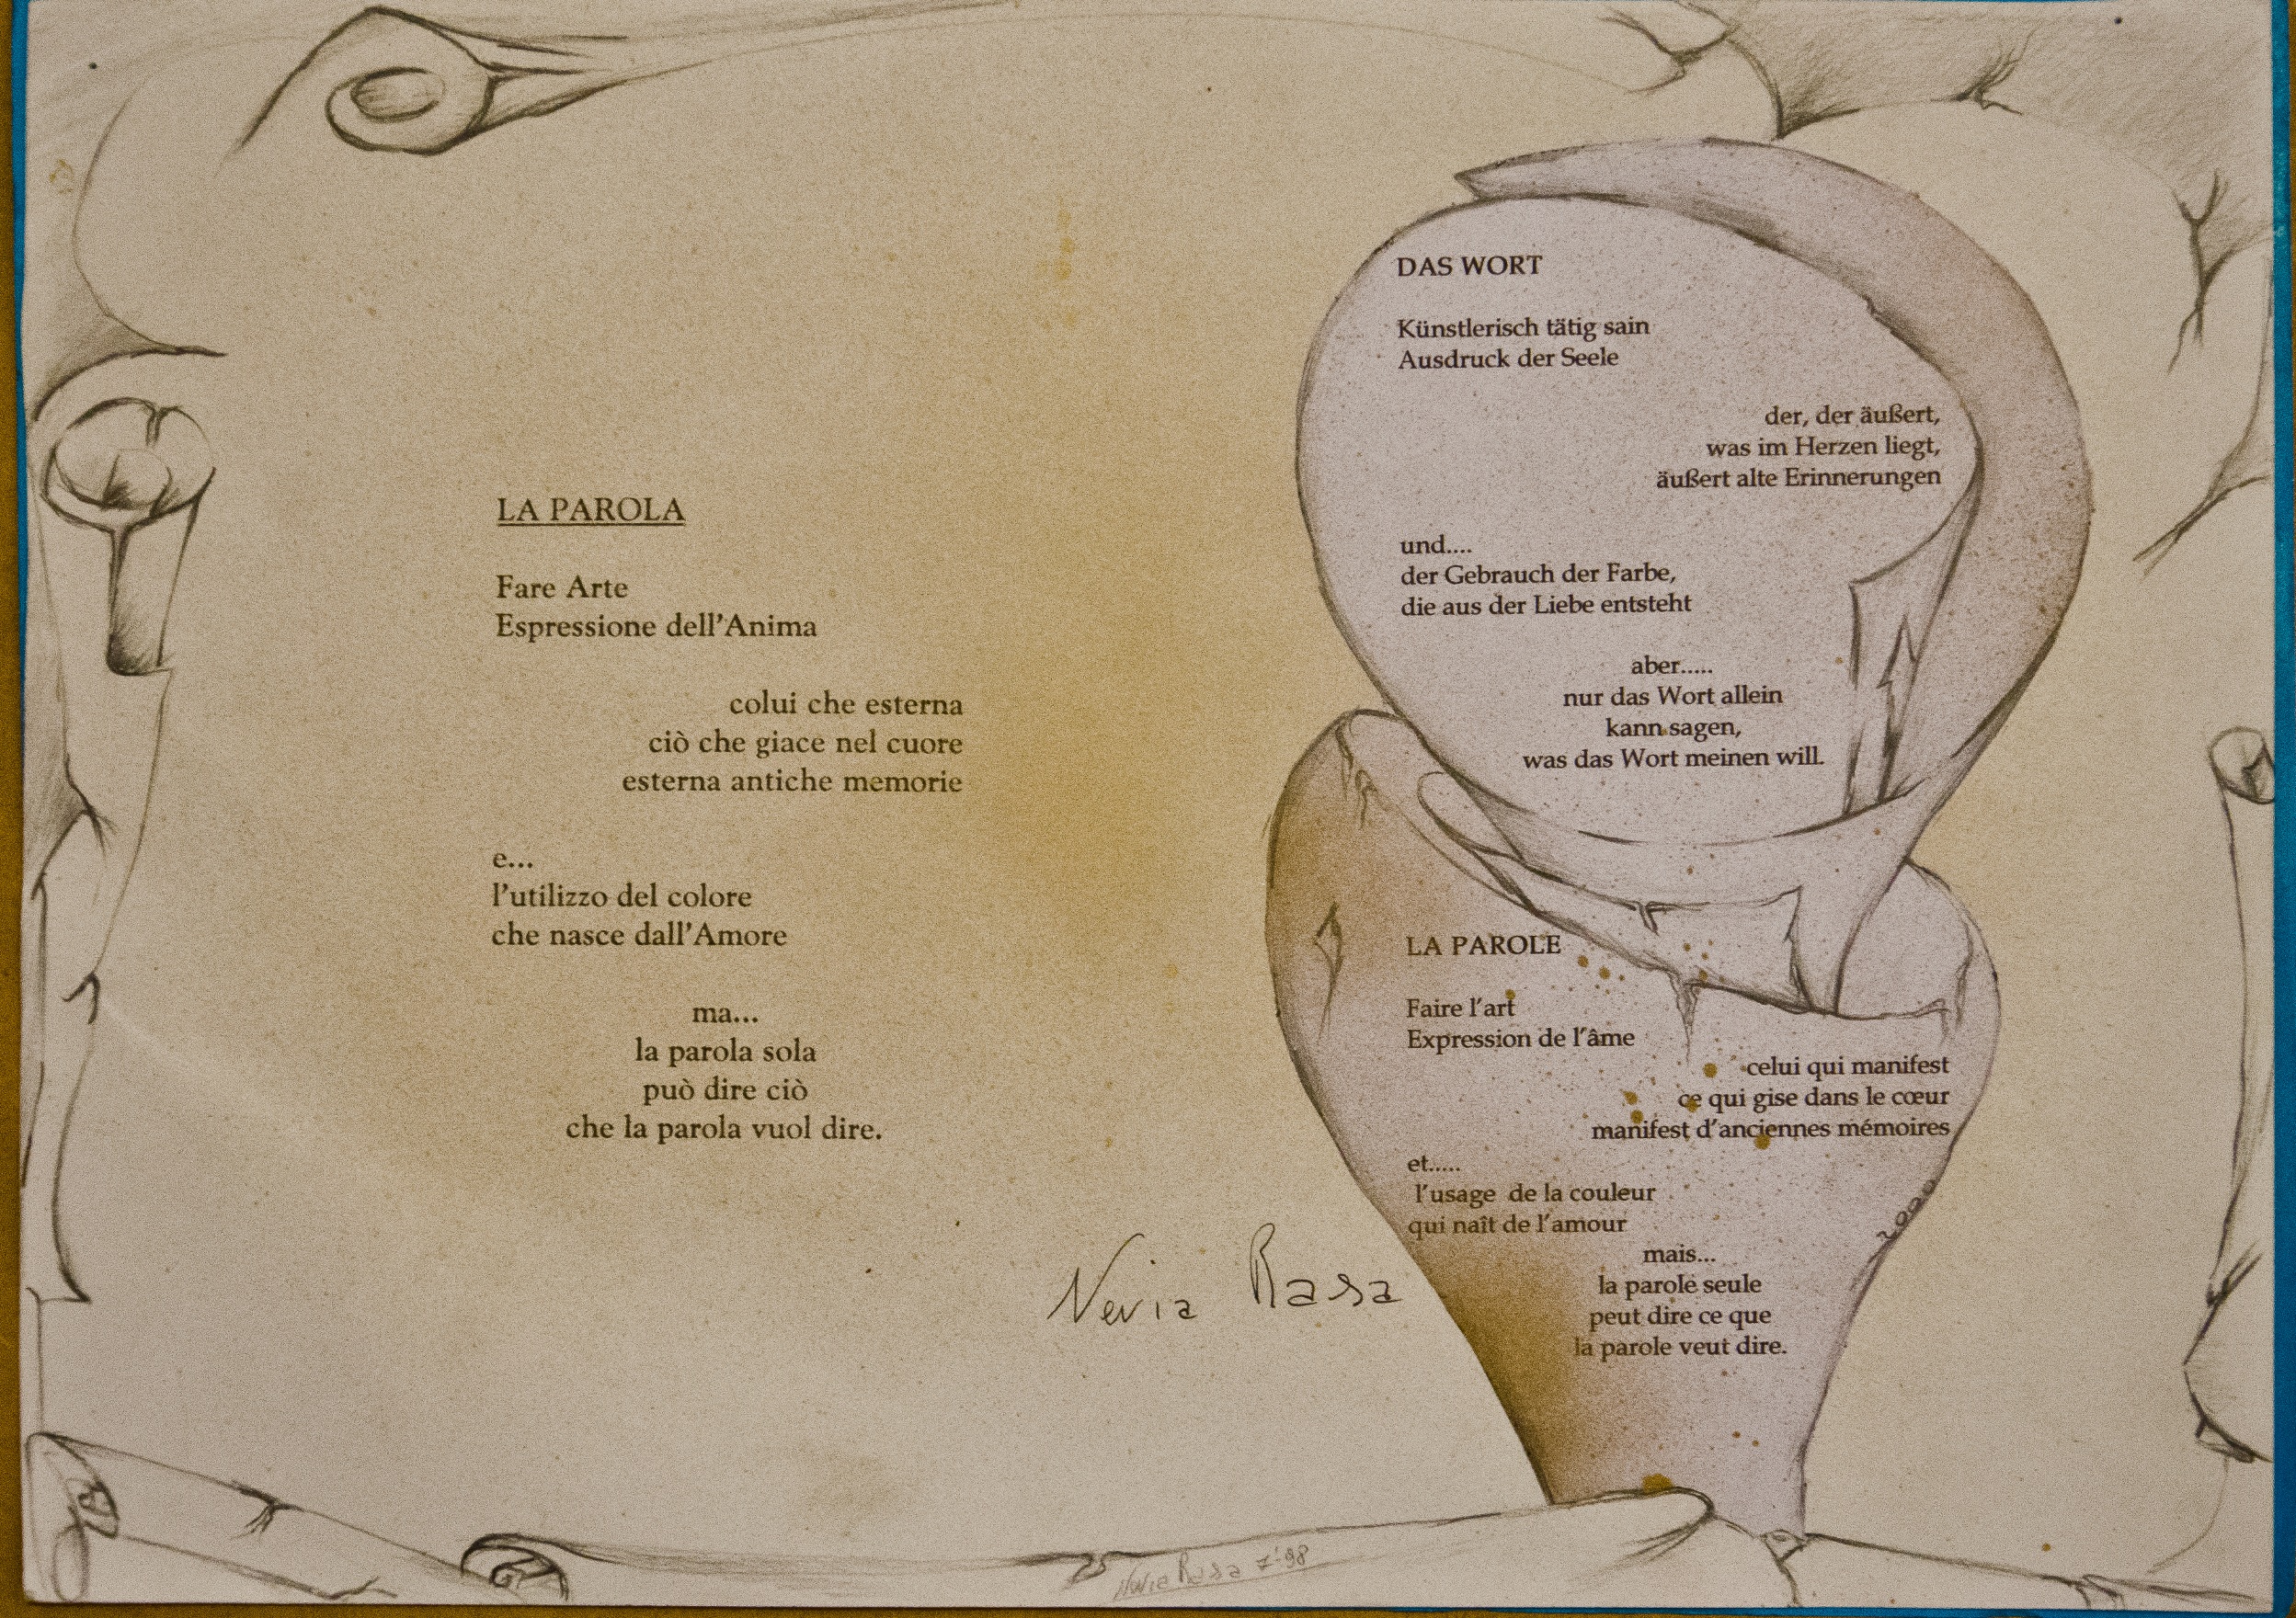 LA PAROLA
Fare Arte
Espressione dell'Anima
colui che esterna
ciò che giace nel cuore
esterna antiche memorie
e...
l'utilizzo del colore
che nasce dall'Amore
ma...
la parola sola
può dire ciò
che la parola vuol dire.
Nevia Rasa
DAS WORT
Künstlerisch tätig sain
Ausdruck der Seele
der, der äußert,
was im Herzen liegt,
äußert alte Erinnerungen
und....
der Gebrauch der Farbe,
die aus der Liebe entsteht
aber.....
nur das Wort allein
kann sagen,
was das Wort meinen will.
LA PAROLE
Faire l'art
Expression de l'âme
celui qui manifest
ce qui gise dans le cœur
manifest d'anciennes mémoires
et.....
l'usage de la couleur
qui naît de l'amour
mais...
la parole seule
peut dire ce que
la parole veut dire.
2000
Nevia Rasa 7-'98